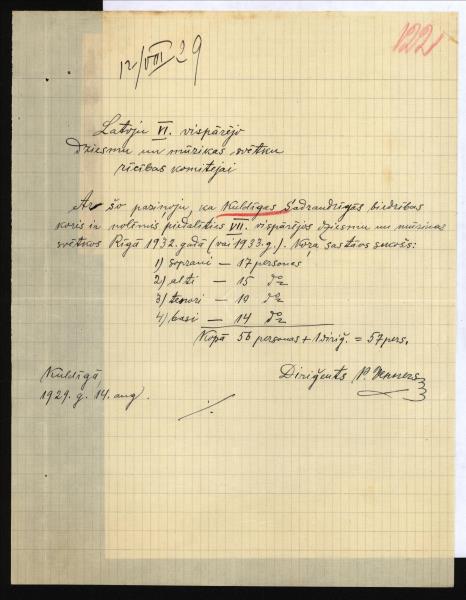 122
12/VIII 29
Latvju VI. vispārējo
dziesmu un mūzikas svētku
rīcības komitejai
Ar šo paziņoju, ka Kuldīgas Sadraudzīgās biedrības
koris ir nolēmis piedalīties VII. vispārējos dziesmu un mūzikas
svētkos Rīgā 1932. gadā (vai 1933. g.). Kora sastāvs sekošs:
1) soprani — 17 personas
2) alti — 15 dº
3) tenori — 10 dº
4) basi — 14 dº
Kopā 56 personas + 1 diriģ. = 57 pers.
Kuldīgā,
1929. g. 14. aug.
Diriģents P.